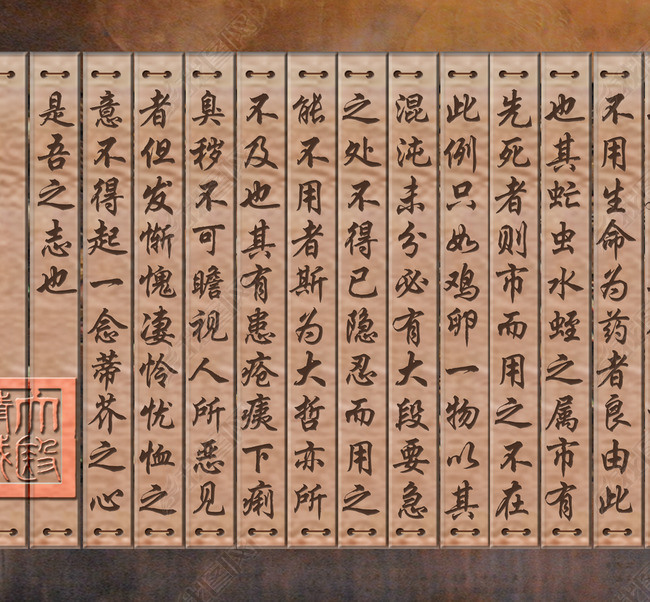 不用生命为药者良由此
也其虻虫水蛭之属市有
先死者则市而用之不在
此例只如鸡卵一物以其
混沌未分必有大段要急
之处不得已隐忍而用之
能不用者斯为大哲亦所
不及也其有患疮痍下痢
臭秽不可瞻视人所恶见
者但发惭愧凄怜忧恤之
意不得起一念蒂芥之心
是吾之志也